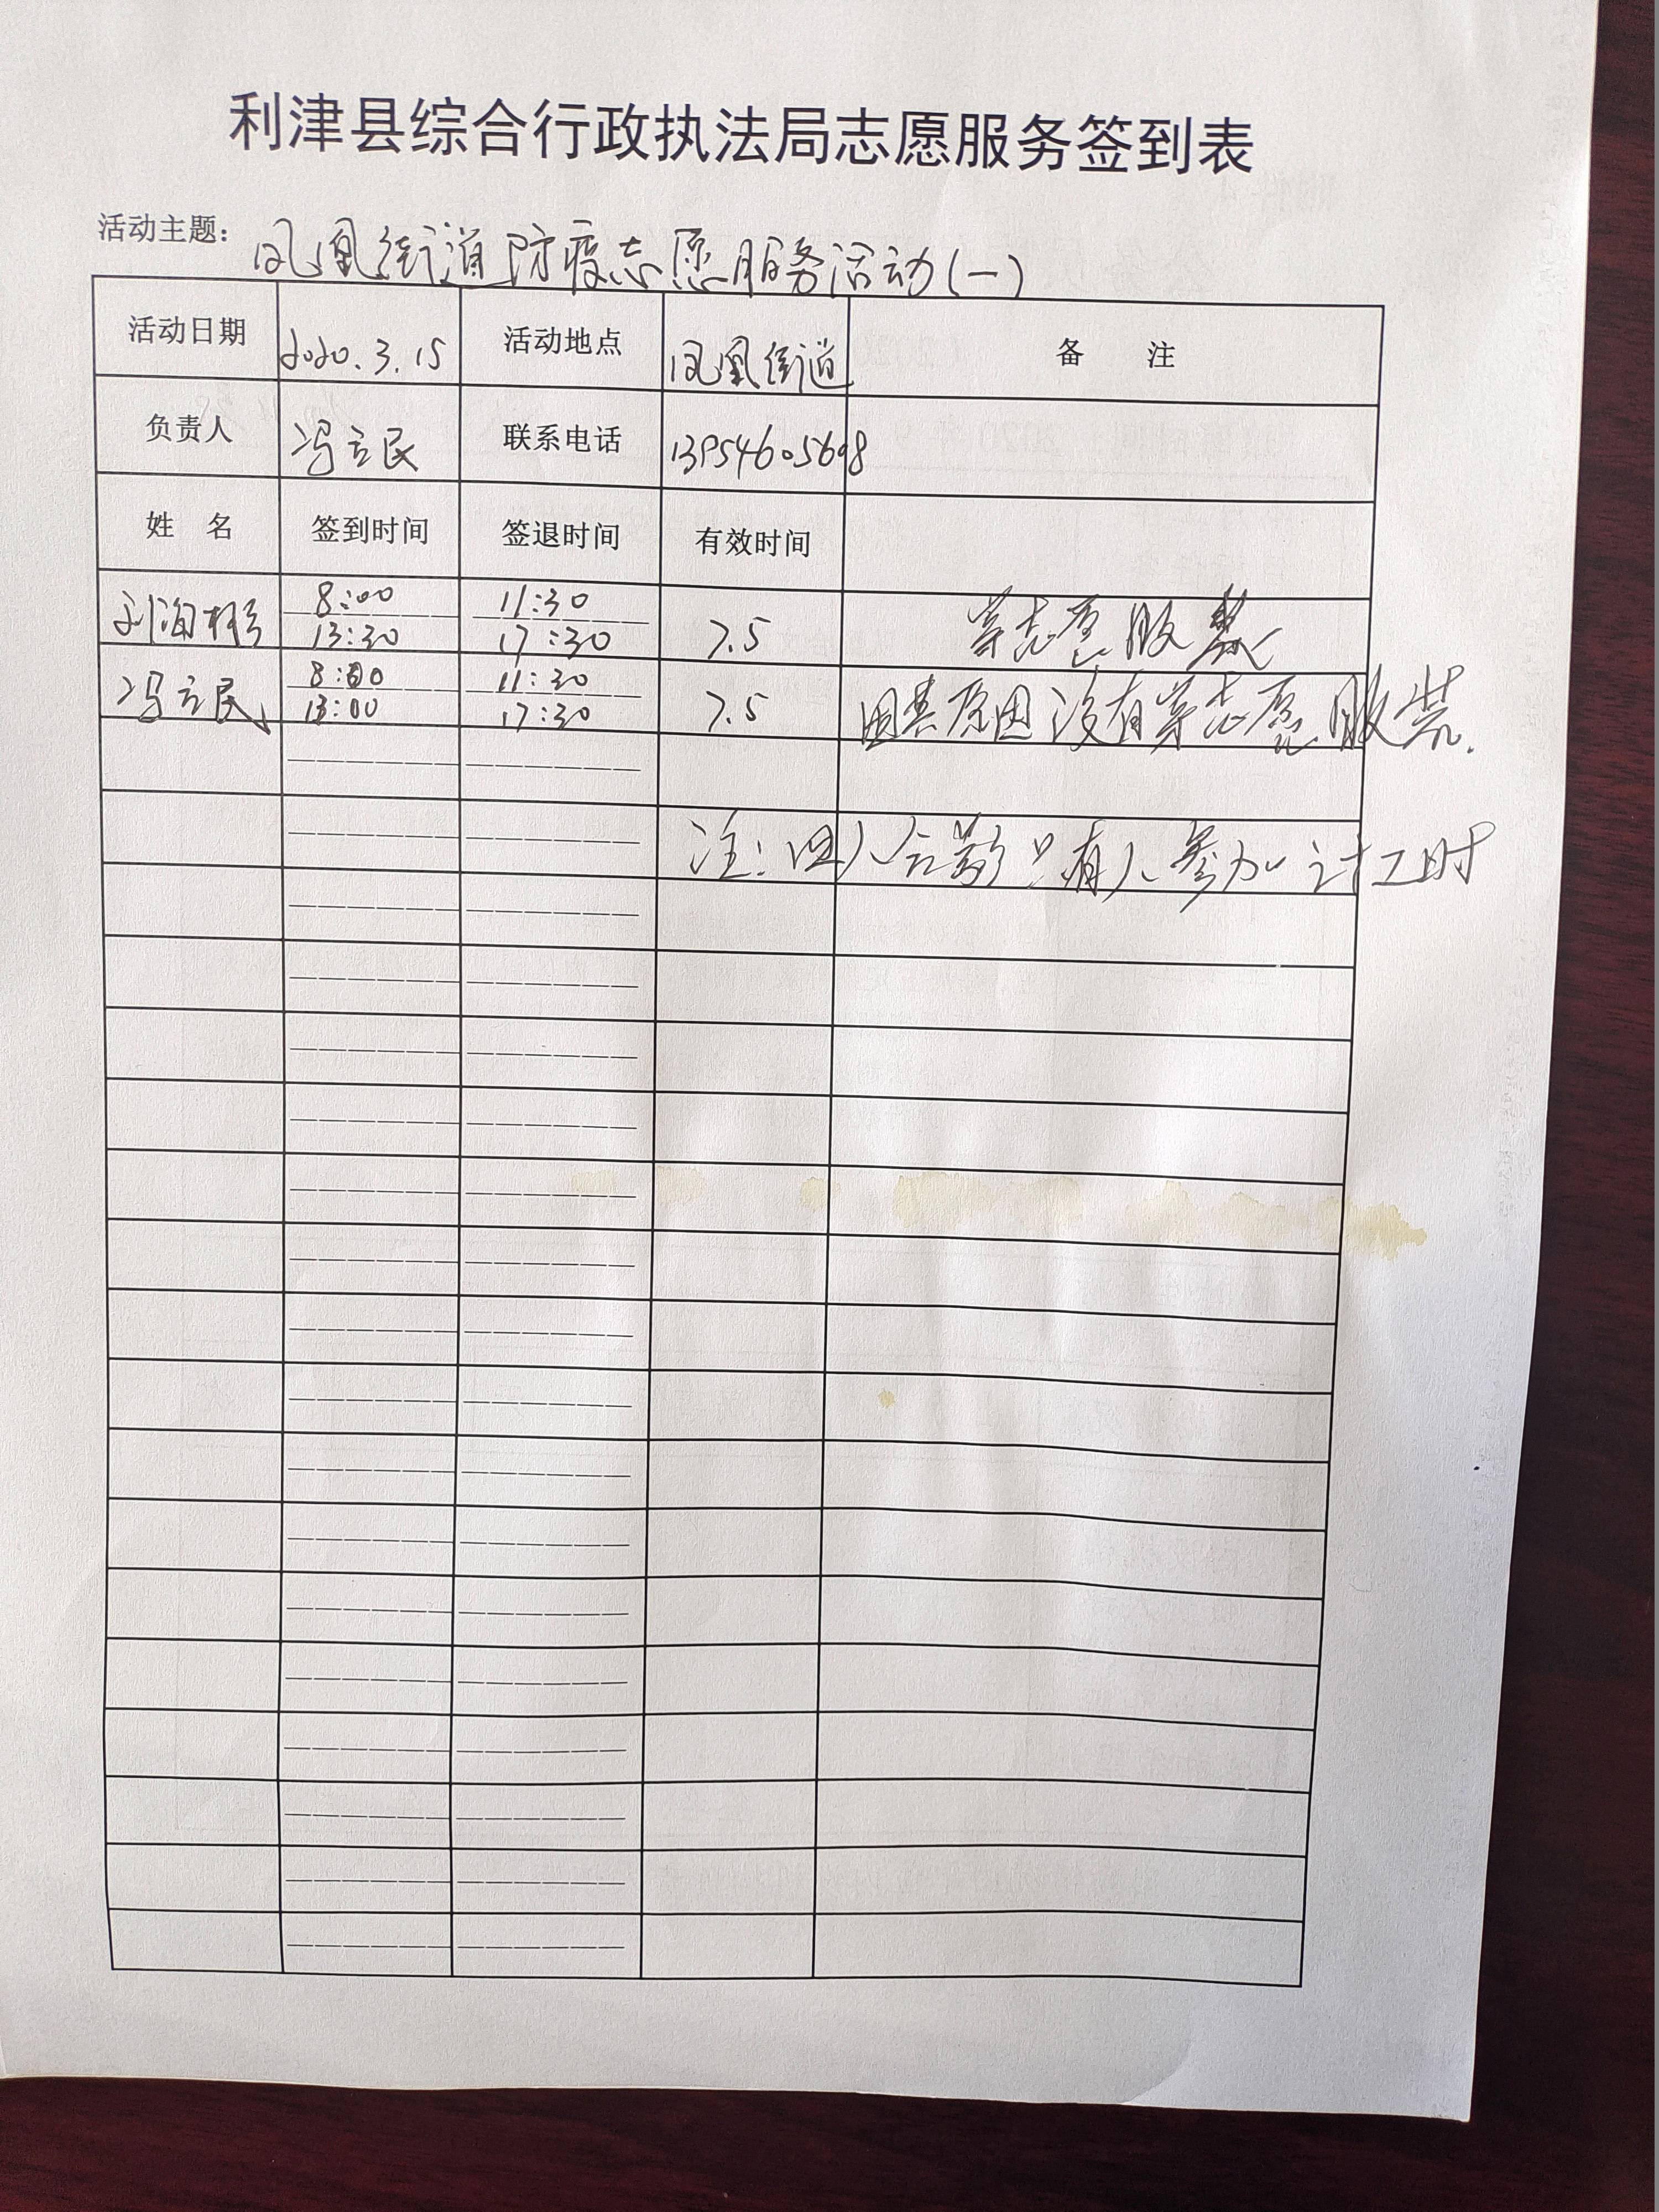 利津县综合行政执法局志愿服务签到表
活动主题: 凤凰街道防疫志愿服务活动(一)
活动日期 2020.3.15 活动地点 凤凰街道 备 注
负责人 冯立民 联系电话 13954605698
姓 名 签到时间 签退时间 有效时间
刘海 8:00 11:30 7.5 穿志愿服装
13:30 17:30
冯立民 8:00 11:30 7.5 因其原因没有穿志愿服装.
13:00 17:30
注: 人 数只有人参加计工时